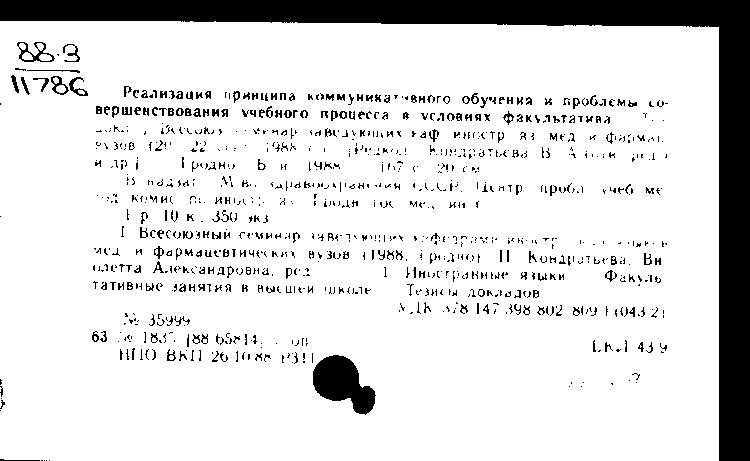 88-3
11786
Реализация принципа коммуникативного обучения и проблемы со-
вершенствования учебного процесса в условиях факультатива
докл., Всесоюз семинар заведующих каф иностр яз мед и фармац
вузов 1988 (Редкол Кондратьева В А
и др ) Гродно Б и 1988 167 с 20 см
В надзаг М во здравоохранения СССР, Центр пробл учеб ме
тод комис по иностр яз Гродн гос мед ин т
1 р 10 к 350 экз
I Всесоюзный семинар заведующих кафедрами иностр
мед и фармацевтических вузов (1988, Гродно) II Кондратьева, Ви
олетта Александровна, ред 1 Иностранные языки Факуль
тативные занятия в высшей школе Тезисы докладов
УДК 378 147 398 802 809 1(043 2)
№ 35999
63 № 183 [88 65814]
НПО ВКП 26 10 88
43 9